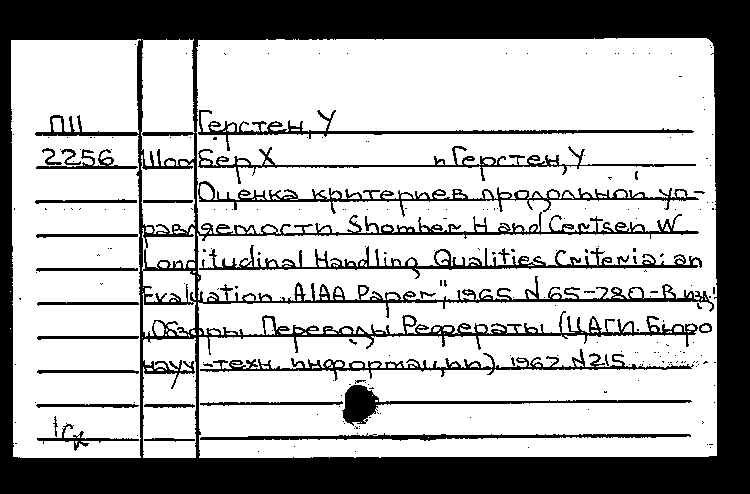 П11 Герстен, У
2256 Шомбер, Х и Герстен, У
Оценка критериев продольной уп-
равляемости. Shomber, H and Certsen, W.
Longitudinal Handling Qualities Criteria: an
Evaluation „AIAA Paper", 1965 N 65-780-В изд:
„Обзоры. Переводы. Рефераты (ЦАГИ. Бюро
науч-техн. информации). 1967. N215.
1ск